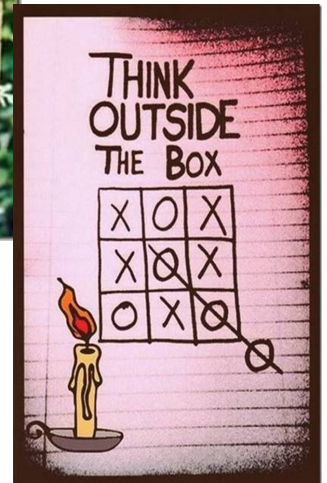 THINK
OUTSIDE
THE BOX
X O X
X O X
O X O
O